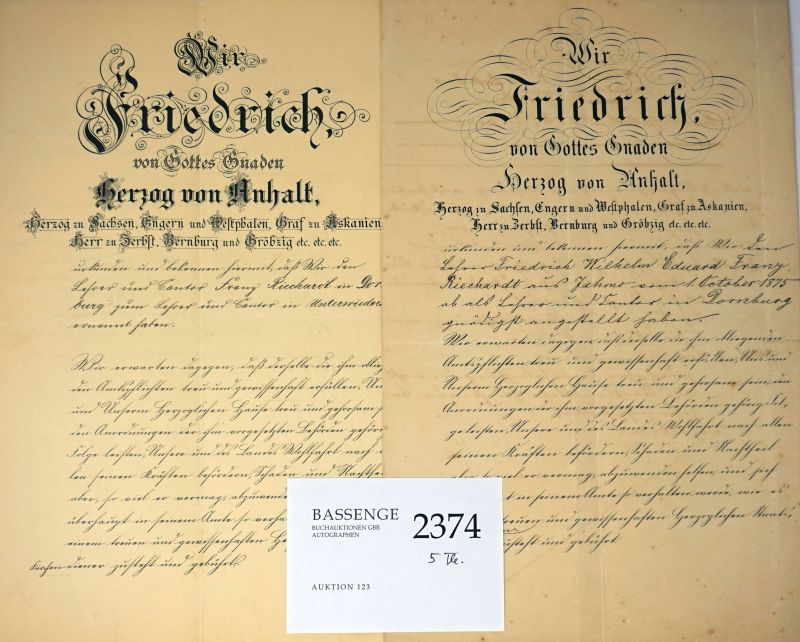 Wir
Friedrich,
von Gottes Gnaden
Herzog von Anhalt,
Herzog zu Sachsen, Engern und Westphalen, Graf zu Askanien
Herr zu Zerbst, Bernburg und Gröbzig etc. etc. etc.
urkunden und bekennen hiermit, daß Wir den
Lehrer und Cantor Franz Riechardt in Dor
burg zum Lehrer und Cantor in Unterwieders
ernannt haben.
Wir erwarten dagegen, daß derselbe die ihm oblie
den Amtspflichten treu und gewissenhaft erfüllen, Un
und Unserm Herzoglichen Hause treu und gehorsam
den Anordnungen der ihm vorgesetzten Behörden gehör
Folge leisten, Unsere und des Landes Wohlfahrt nach
len seinen Kräften befördern, Schaden und Nachthe
aber, so viel er vermag, abzuwende
überhaupt in seinem Amte so verha
einem treuen und gewissenhaften He
diener zusteht und gebührt.
Wir
Friedrich,
von Gottes Gnaden
Herzog von Anhalt,
Herzog zu Sachsen, Engern und Westphalen, Graf zu Askanien,
Herr zu Zerbst, Bernburg und Gröbzig etc. etc. etc.
urkunden und bekennen hiermit, daß Wir den
Lehrer Friedrich Wilhelm Eduard Franz
Riechardt aus Jahmo vom 1. October 1875
ab als Lehrer und Cantor in Dornburg
gnädigst angestellt haben.
Wir erwarten dagegen daß derselbe die ihm obliegenden
Amtspflichten treu und gewissenhaft erfüllen, Uns und
Unserm Herzoglichen Hause treu und gehorsam sein, den
Anordnungen der ihm vorgesetzten Behörden gehörig Fol-
ge leisten, Unsere und des Landes Wohlfahrt nach allen
seinen Kräften befördern, Schaden und Nachtheil
so viel er vermag, abzuwenden helfen, und sich
in seinem Amte so verhalten werde, wie es
treuen und gewissenhaften Herzoglichen
zusteht und gebührt
BASSENGE
BUCHAUKTIONEN GBR
AUTOGRAPHEN
2374
5 Tle.
AUKTION 123